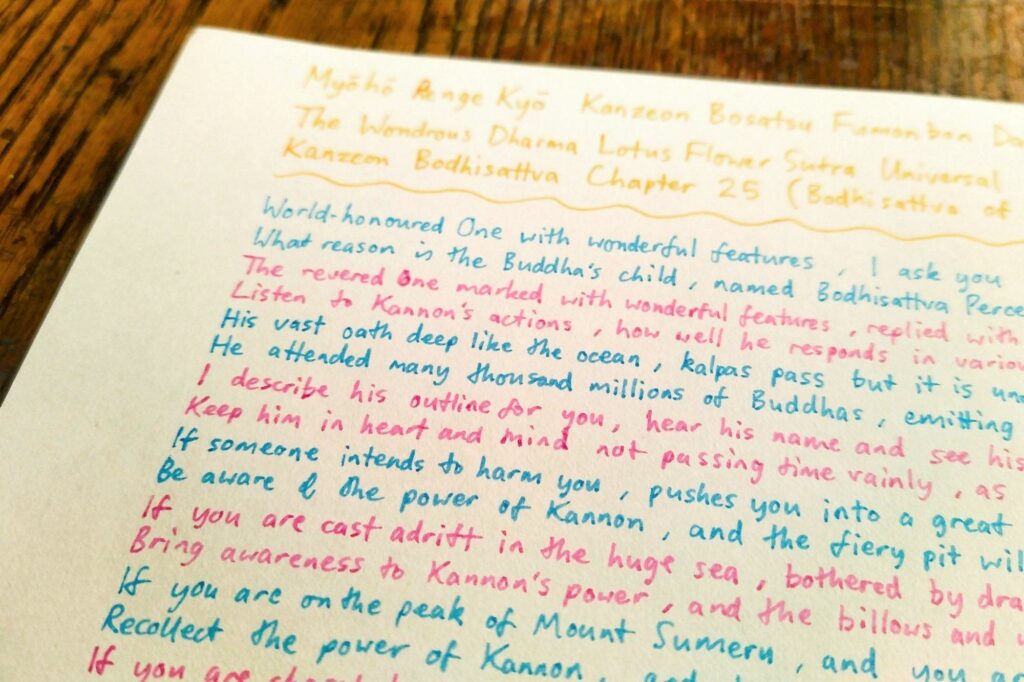 Myōhō Renge Kyō Kanzeon Bosatsu Fumonbon Da
The Wondrous Dharma Lotus Flower Sutra Universal
Kanzeon Bodhisattva Chapter 25 (Bodhisattva of
World-honoured One with wonderful features, I ask you
What reason is the Buddha's child, named Bodhisattva Perce
The revered One marked with wonderful features, replied with
Listen to Kannon's actions, how well he responds in variou
His vast oath deep like the ocean, kalpas pass but it is un
He attended many thousand millions of Buddhas, emitting
I describe his outline for you, hear his name and see his
Keep him in heart and mind not passing time vainly, as
If someone intends to harm you, pushes you into a great
Be aware of the power of Kannon, and the fiery pit wil
If you are cast adrift in the huge sea, bothered by dra
Bring awareness to Kannon's power, and the billows and
If you are on the peak of Mount Sumeru, and you ar
Recollect the power of Kannon, and
If you are